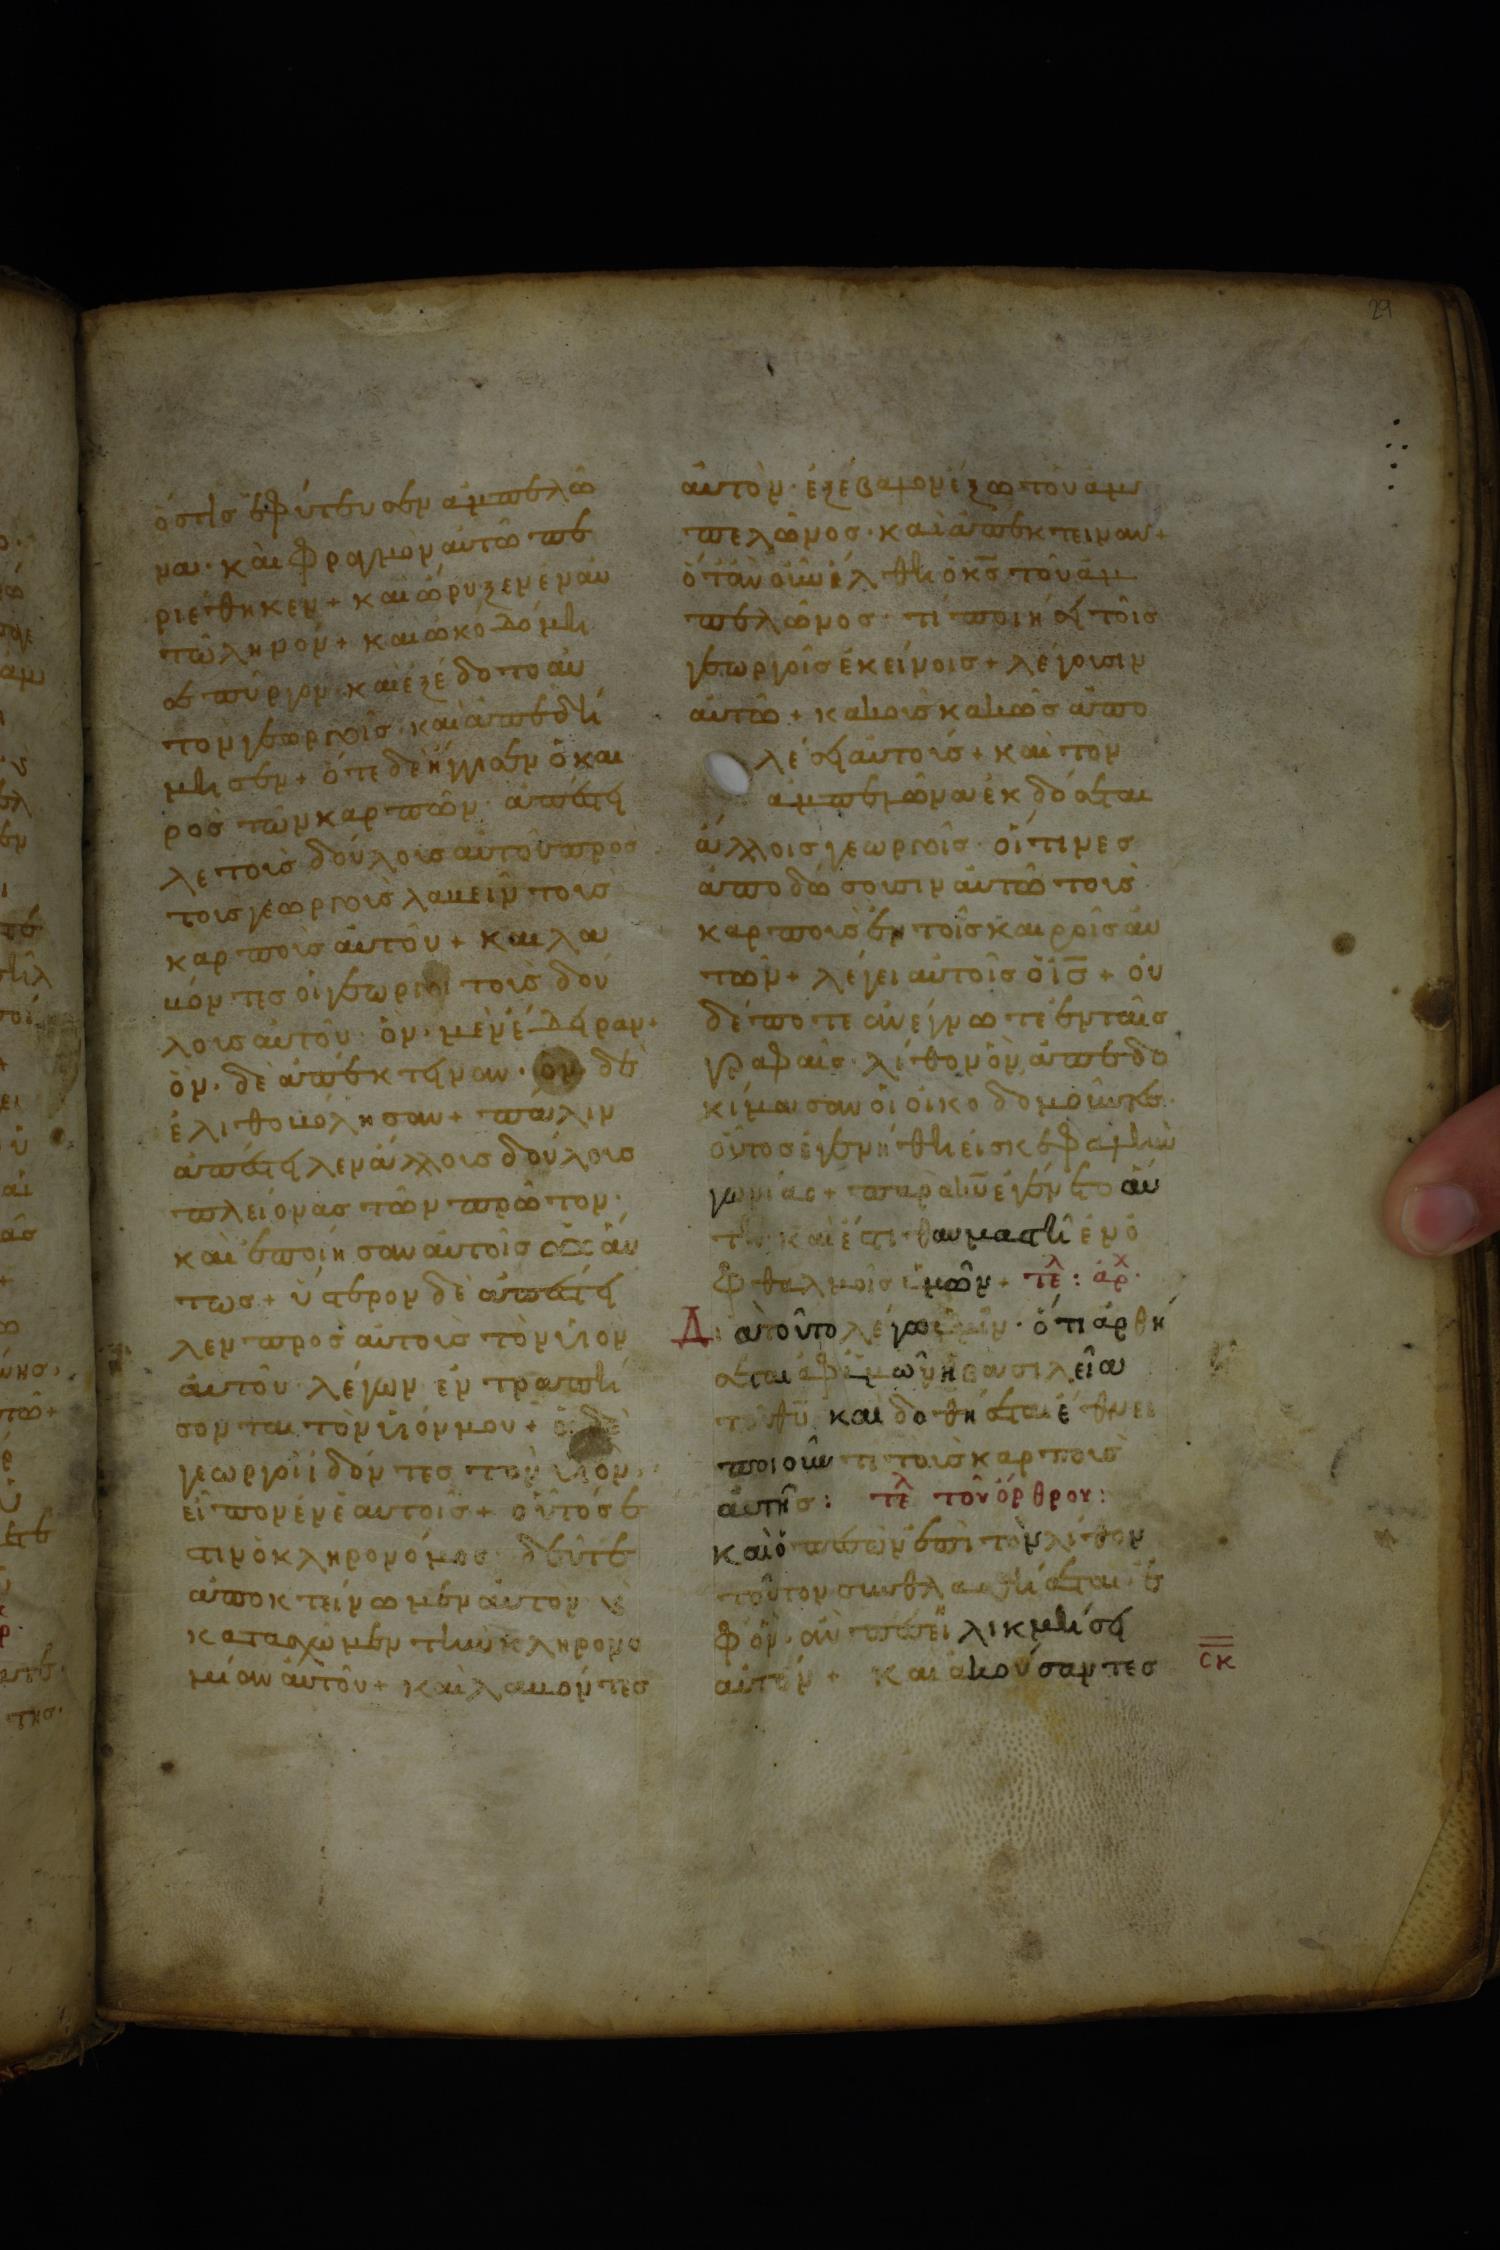 29
ὅστις ἐφύτευσεν ἀμπελῶ
να· καὶ φραγμὸν αὐτῶ πε
ριέθηκεν + καὶ ὤρυξεν ἐν αὐ
τῶ ληνόν + καὶ ὠκοδόμη
σε πύργον· καὶ ἐξέδοτο αὐ
τὸν γεωργοῖς· καὶ ἀπεδή
μησεν + ὅτε δὲ ἤγγισεν ὁ και
ρὸς τῶν καρπῶν· ἀπέστει
λε τοὺς δούλους αὐτοῦ πρὸς
τοὺς γεωργοὺς λαβεῖν τοὺς
καρποὺς αὐτοῦ + καὶ λα
βόντες οἱ γεωργοὶ τοὺς δού
λους αὐτοῦ· ὃν· μὲν ἔδειραν +
ὃν· δὲ ἀπέκτειναν· ὃν· δὲ
ἐλιθοβόλησαν + πάλιν
ἀπέστειλεν ἄλλους δούλους
πλείονας τῶν πρώτων·
καὶ ἐποίησαν αὐτοῖς ὡσαύ
τως + ὕστερον δὲ ἀπέστει
λεν πρὸς αὐτοὺς τὸν υἱὸν
αὐτοῦ· λέγων ἐντραπή
σονται τὸν υἱόν μου + οἱ δὲ
γεωργοὶ ἰδόντες τὸν υἱὸν·
εἶπον ἐν ἑαυτοῖς + οὗτός ἐ
στιν ὁ κληρονόμος· δεῦτε
ἀποκτείνωμεν αὐτὸν κ
κατασχῶμεν τὴν κληρονο
μίαν αὐτοῦ + καὶ λαβόντες
αὐτὸν· ἐξέβαλον ἔξω τοῦ ἀμ
πελῶνος· καὶ ἀπέκτειναν +
ὅταν οὖν ἔλθη ὁ κς τοῦ ἀμ
πελῶνος· τί ποιήσει τοῖς
γεωργοῖς ἐκείνοις + λέγουσιν
αὐτῶ + κακοὺς κακῶς ἀπο
λέσει αὐτούς + καὶ τὸν
ἀμπελῶνα ἐκδόσεται
ἄλλοις γεωργοῖς· οἵτινες
ἀποδώσουσιν αὐτῶ τοὺς
καρποὺς ἐν τοῖς καιροῖς αὐ
τῶν + λέγει αὐτοῖς ὁ ις + οὐ
δέποτε ἀνέγνωτε ἐν ταῖς
γραφαῖς· λίθον ὃν ἀπεδο
κίμασαν οἱ οἰκοδομοῦντες·
οὗτος ἐγενήθη εἰς κεφαλὴν
γωνίας + παρὰ κυ ἐγένετο αὕ
τη καὶ ἔστι θαυμαστὴ ἐν ὀ
φθαλμοῖς ἡμῶν + τελ: ἀρχ·
Διατοῦτο λέγω ὑμῖν· ὅτι ἀρθή
σεται ἀφ' ὑμῶν ἡ βασιλεία
τοῦ θυ καὶ δοθήσεται ἔθνει
ποιοῦντι τοὺς καρποὺς
αὐτῆς: τελ τοῦ ὄρθρου:
καὶ ὁ πεσὼν ἐπὶ τὸν λίθον
τοῦτον συνθλασθήσεται· ἐ
φ' ὃν· ἂν πέση λικμήσει
αὐτόν + καὶ ἀκούσαντες
σκ